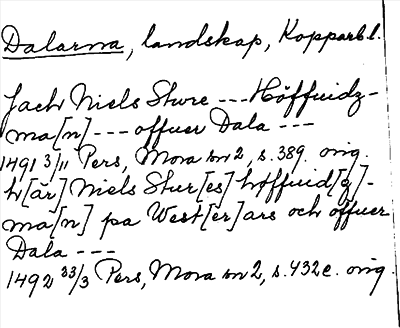 Dalarna, landskap, Kopparb.l.
Jach Niels Sture --- Höffuidz-
ma[n] --- offuer Dala ---
1491 3/11 Pers, Mora sn 2, s. 389. orig.
h[är] Niels Stur[es] höffuid[z]-
ma[n] pa West[er]ars och offuer
Dala ---
1492 23/3 Pers, Mora sn 2, s. 432e. orig.